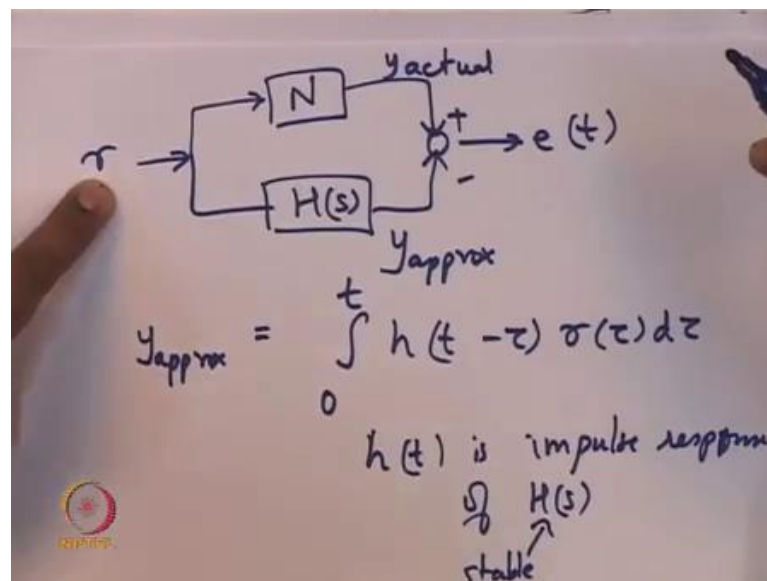 y actual
N
+
r
e (t)
-
H(s)
y approx
y approx = ∫ 0 t h (t - τ) r(τ) dτ
h (t) is impulse response
of H(s)
stable
NPTEL